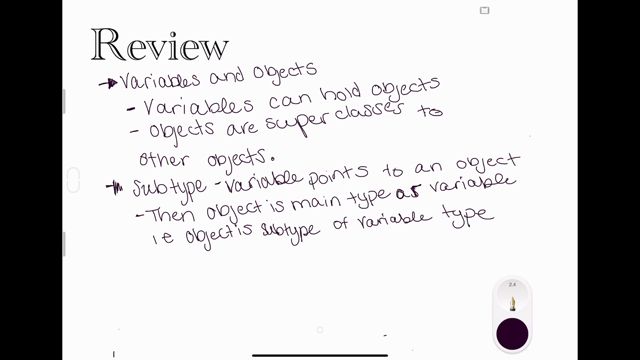 Review
→ Variables and Objects
- Variables can hold objects
- Objects are superclasses to
other objects.
→ Subtype - variable points to an object
- Then object is main type as variable
i.e object is subtype of variable type
2.4